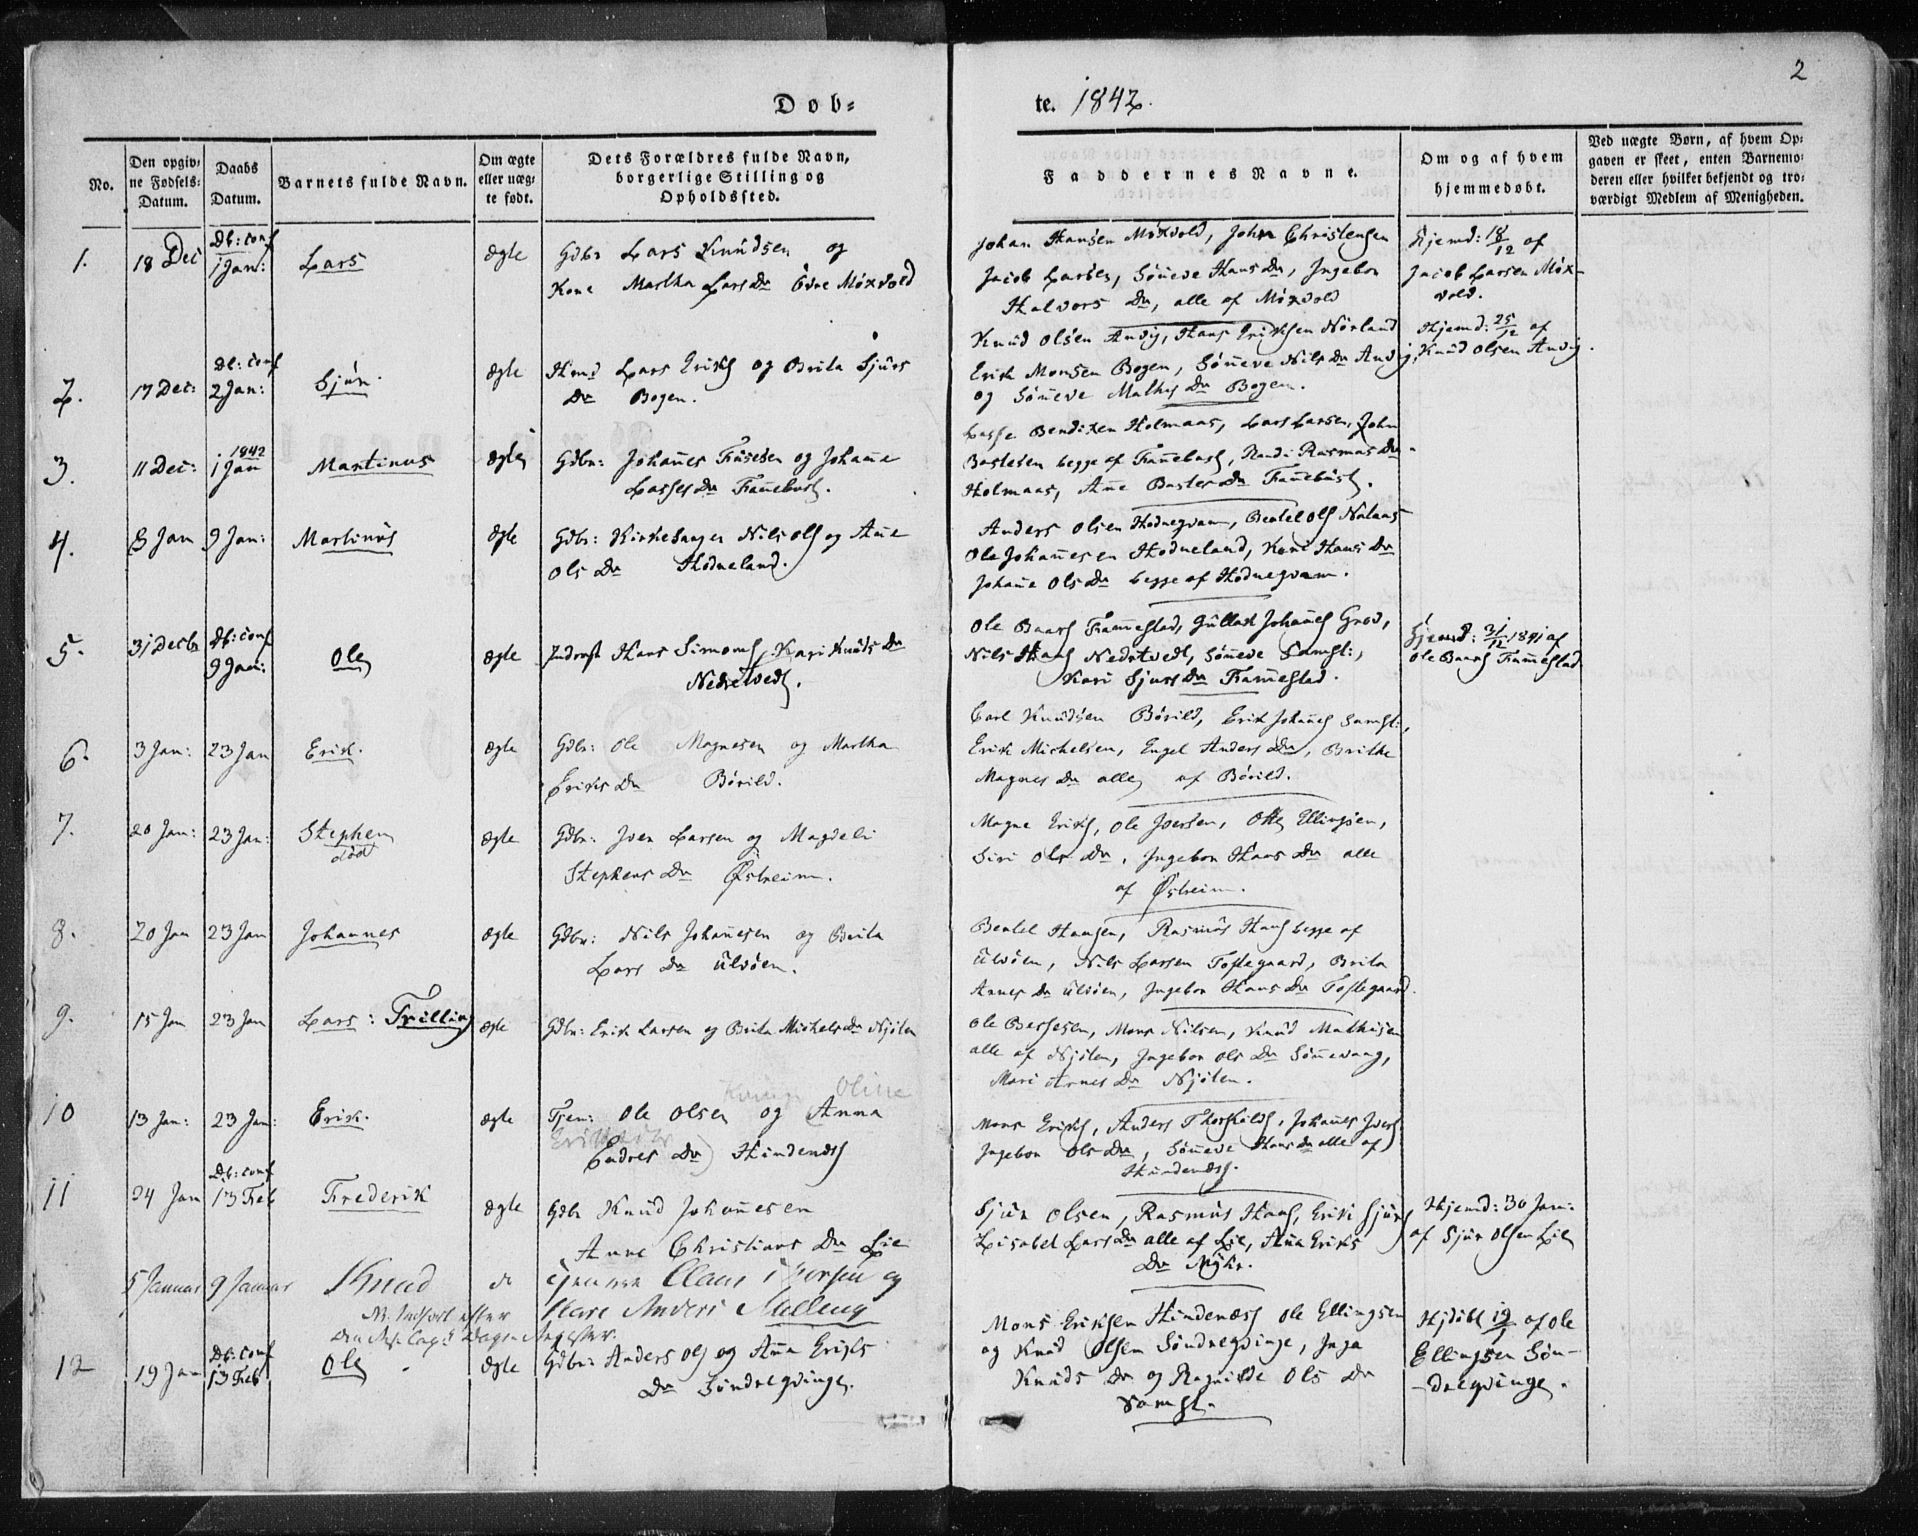 2
Døb=
te. 1842.
No.
Den opgiv=
ne Fødsels=
Datum.
Daabs
Datum.
Barnets fulde Navn.
Om ægte
eller uæg=
te født.
Dets Forældres fulde Navn,
borgerlige Stilling og
Opholdssted.
Faddernes Navne.
Om og af hvem
hjemmedøbt.
Ved uægte Børn, af hvem Op=
gaven er skeet, enten Barnemo=
deren eller hvilket bekjendt og tro=
værdigt Medlem af Menigheden.
1.
18 Dec
Db: conf
1 Jan:
Lars
ægte
Gdbr Lars Knudsen og
Kone Martha Lars Dr Øvre Møxvold
Johan Hansen Møxvold, John Christensen
Jacob Larsen, Sønneve Hans Dr, Ingebor
Halvors Dr, alle af Møxvold
Hjemd: 18/12 af
Jacob Larsen Møx-
vold.
2.
17 Dec:
Db: conf
2 Jan:
Sjur.
ægte
Hmd Lars Eriks og Brita Sjurs
Dr Bogen.
Knud Olsen Andvig, Hans Eriksen Nørland
Erik Monsen Bogen, Sønneve Nils Dr Andvig,
og Sønneve Mathis Dr Bogen.
Hjemd: 25/12 af
Knud Olsen Andvig.
3.
11 Dec:
1842
1 Jan
Martinus
ægte
Gdbr: Johannes and Johanne
Lasses Dr
Lasse Bendixen Holmaas, Lars Larsen, John
begge af Rasmus Dr
Holmaas, Anne
4.
8 Jan
9 Jan:
Martinus
ægte
Gdbr: Kirkesanger Nils Ols og Anne
Ols Dr Hodneland.
Anders Olsen Hodnegvam, Bertel Ols
Ole Johannesen Hodneland, Kari Hans Dr
Johanne Ols Dr begge af Hodnegvam.
5.
31 Decb
Db: conf
9 Jan:
Ole
ægte
Inderst Hans Simons, Kari Knuds Dr
Nedretvedt.
Ole Baars Frammestad, Gullak Johannes
Nils Hans Nedretvedt, Sønneve Samst:,
Kari Sjurs Dr Frammestad.
Hjemd: 31/12 1841 af
Ole Baars Frammestad
6.
3 Jan:
23 Jan
Erik.
ægte
Gdbr: Ole Magnesen og Martha
Eriks Dr Børild.
Carl Knudsen Børild, Erik Johannes Samst:,
Erik Michelsen, Engel Anders Dr, Brithe
Magnes Dr alle af Børild.
7.
20 Jan:
23 Jan:
Stephen
død
ægte
Gdbr: Iver Larsen og Magdeli
Stephens Dr Østreim.
Magne Eriks, Ole Iversen, Otte Ellingsen,
Siri Ols Dr, Ingebor Hans Dr alle
af Østreim.
8.
20 Jan
23 Jan
Johannes
ægte
Gdbr: Nils Johannesen og Brita
Lars Dr Ulvøen.
Bertel Hansen, Rasmus Hans begge af
Ulvøen, Nils Larsen Toftegaard, Brita
Arnes Dr Ulvøen, Ingebor Hans Dr Toftegaard.
9.
15 Jan
23 Jan
Lars: Trilling
ægte
Gdbr: Erik Larsen og Brita Michels Dr Njøten
Ole Børgesen, Mons Nilsen, Knud Mathisen
alle af Njøten, Ingebor Ols Dr Sønnevaag,
Mari Arnes Dr Njøten.
10
13 Jan:
23 Jan:
Erik.
ægte
Oline
Tjen: Ole Olsen og Anna
Endres Dr Hindenæs
Mons Eriks, Anders Thorkilds, Johannes Ivers
Ingebor Ols Dr, Sønneve Hans Dr alle af
Hindenæs.
11
24 Jan
Db: conf
13 Feb
Frederik
ægte
Gdbr Knud Johannesen
Anne Christians Dr Lie
Sjur Olsen, Rasmus Hans, Erik Sjurs,
Lisabet Lars Dr alle af Lie, Anna Eriks
Dr Myhr.
Hjemd: 30 Jan:
af Sjur Olsen Lie
5 Januar
9 Januar
Knud
Claus Iversen og
Kari Anders Melleng
NB. Indført efter
Den Res. Cap: Dagsregister.
12
19 Jan
Db: conf
13 Feb
Ole
ægte
Gdbr: Anders Ols og Anna Eriks
Dr Søndreqvinge.
Mons Eriksen Hindenæs Ole Ellingsen
og Knud Olsen Søndreqvinge, Inga
Knuds Dr og Ragnilde Ols Dr
Samst.
Hjdøbt 19/1 af Ole
Ellingsen Søn-
-dreqvinge.